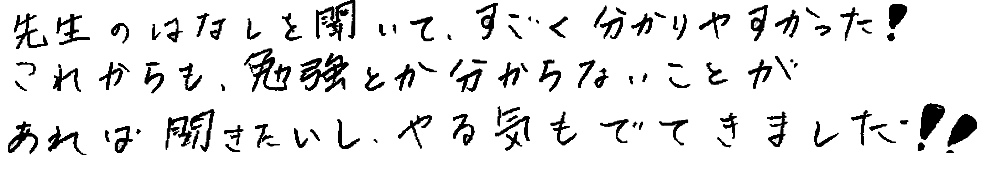 先生のはなしを聞いて、すごく分かりやすかった！
これからも、勉強とか分からないことが
あれば聞きたいし、やる気もでてきました!!